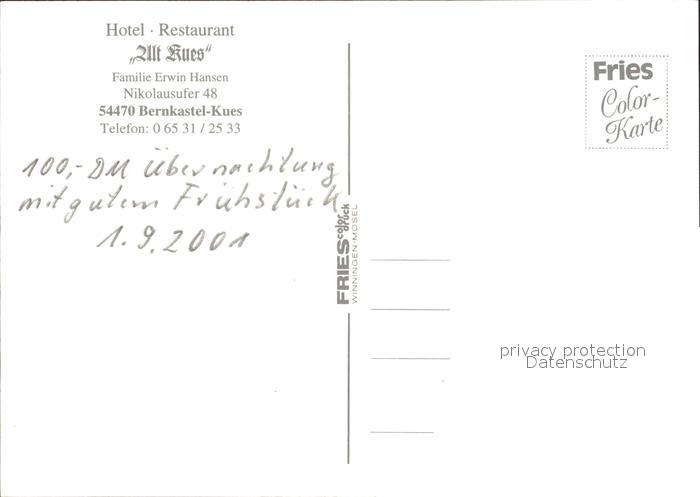 Hotel · Restaurant
„Alt Kues“
Familie Erwin Hansen
Nikolausufer 48
54470 Bernkastel-Kues
Telefon: 0 65 31 / 25 33
100,- DM Übernachtung
mit gutem Frühstück
1.9.2001
FRIES color druck
WINNINGEN-MOSEL
Fries
Color-
Karte
privacy protection
Datenschutz